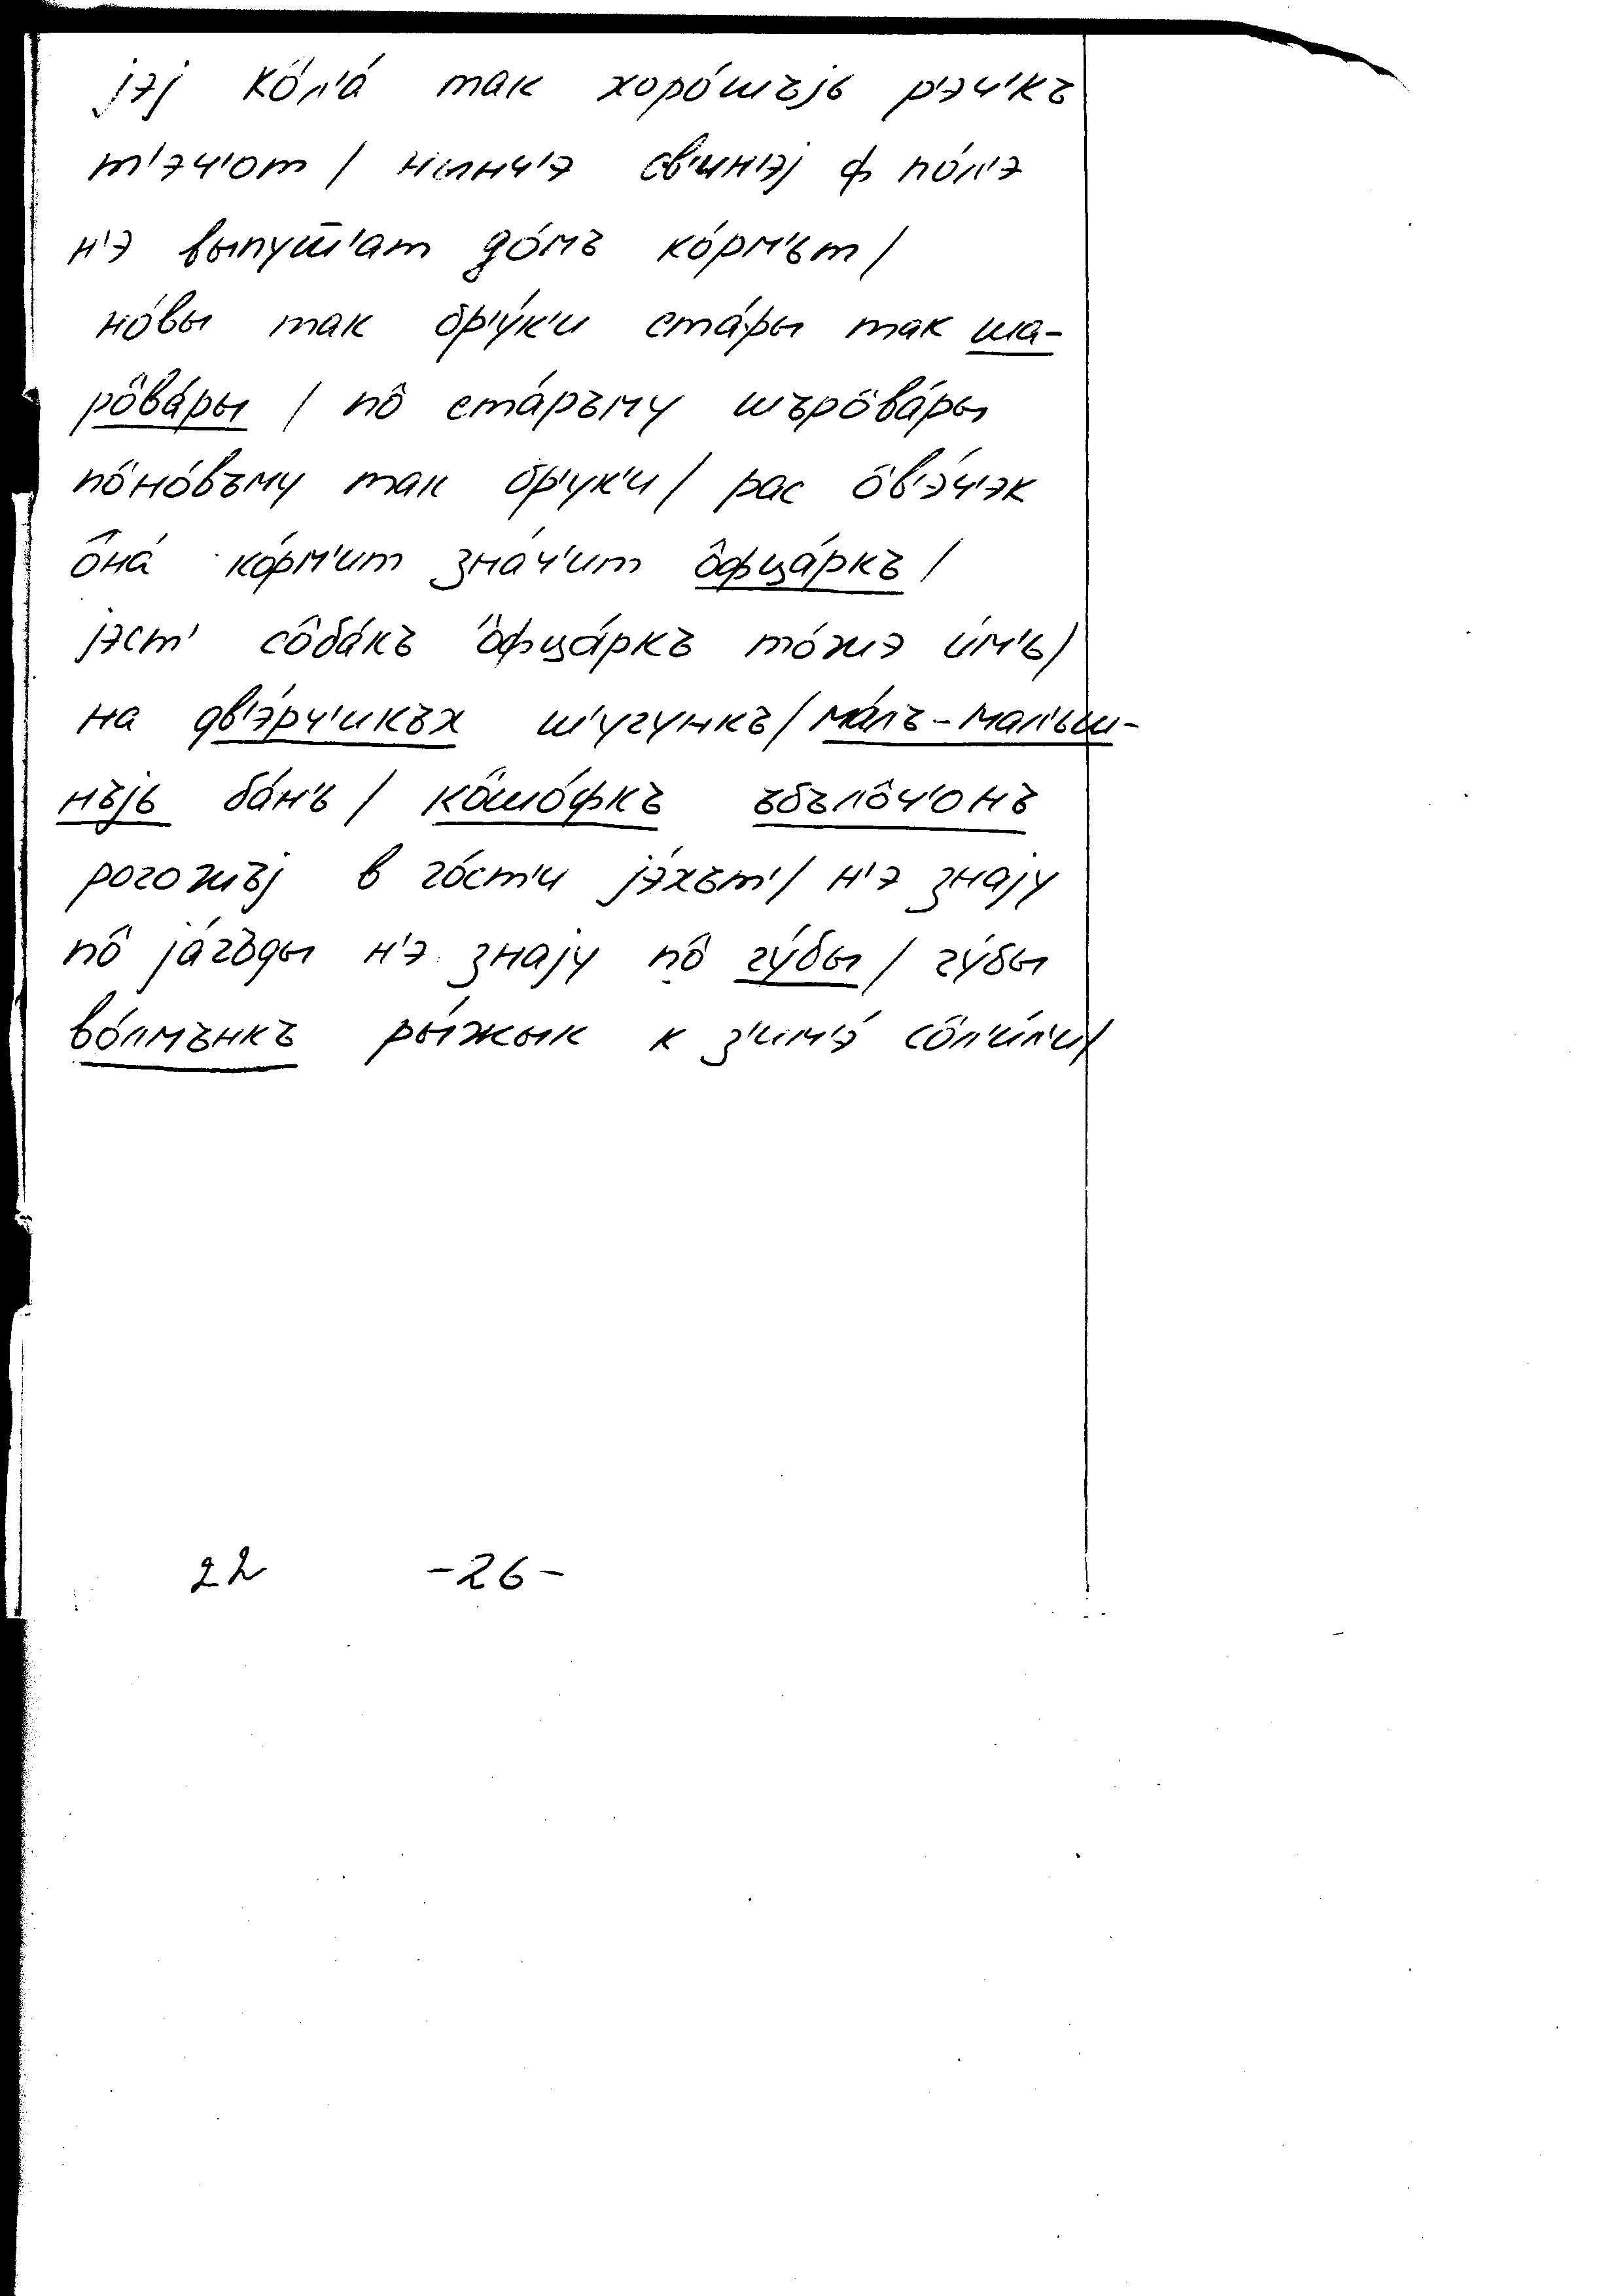 јэј ко́л'а́ так хоро́шъјь р'э́ч'къ
т'эч'от / нынч'э св'ин'эј ф по́л'э
н'э выпуш̅'ат до́мъ ко́рм'ьт /
но́вы так бр'у́к'и ста́ры так ша-
ро̂ва́ры / по̂ ста́ръму шъро̂ва́ры
по̂но́въму так бр'ук'и / рас о̂в'э́ч'эк
о̂на́ ко́рм'ит зна́ч'ит о̂фца́ркъ /
јэст' со̂ба́къ о̂фца́ркъ то́жэ и́м'ь /
на дв'э́рч'икъх ш'угункъ / ма́лъ-мал'ьш-
нъјь ба́н'ь / ко̂шо́фкъ ъбъло̂ч'онъ
рогожъј в го́ст'и јэ́хът' / н'э знају
по̂ ја́гъды н'э знају по̂ гу́бы / гу́бы
во́лмънкъ ры́жык к з'им'э́ со̂л'и́л'и /
22 -26-